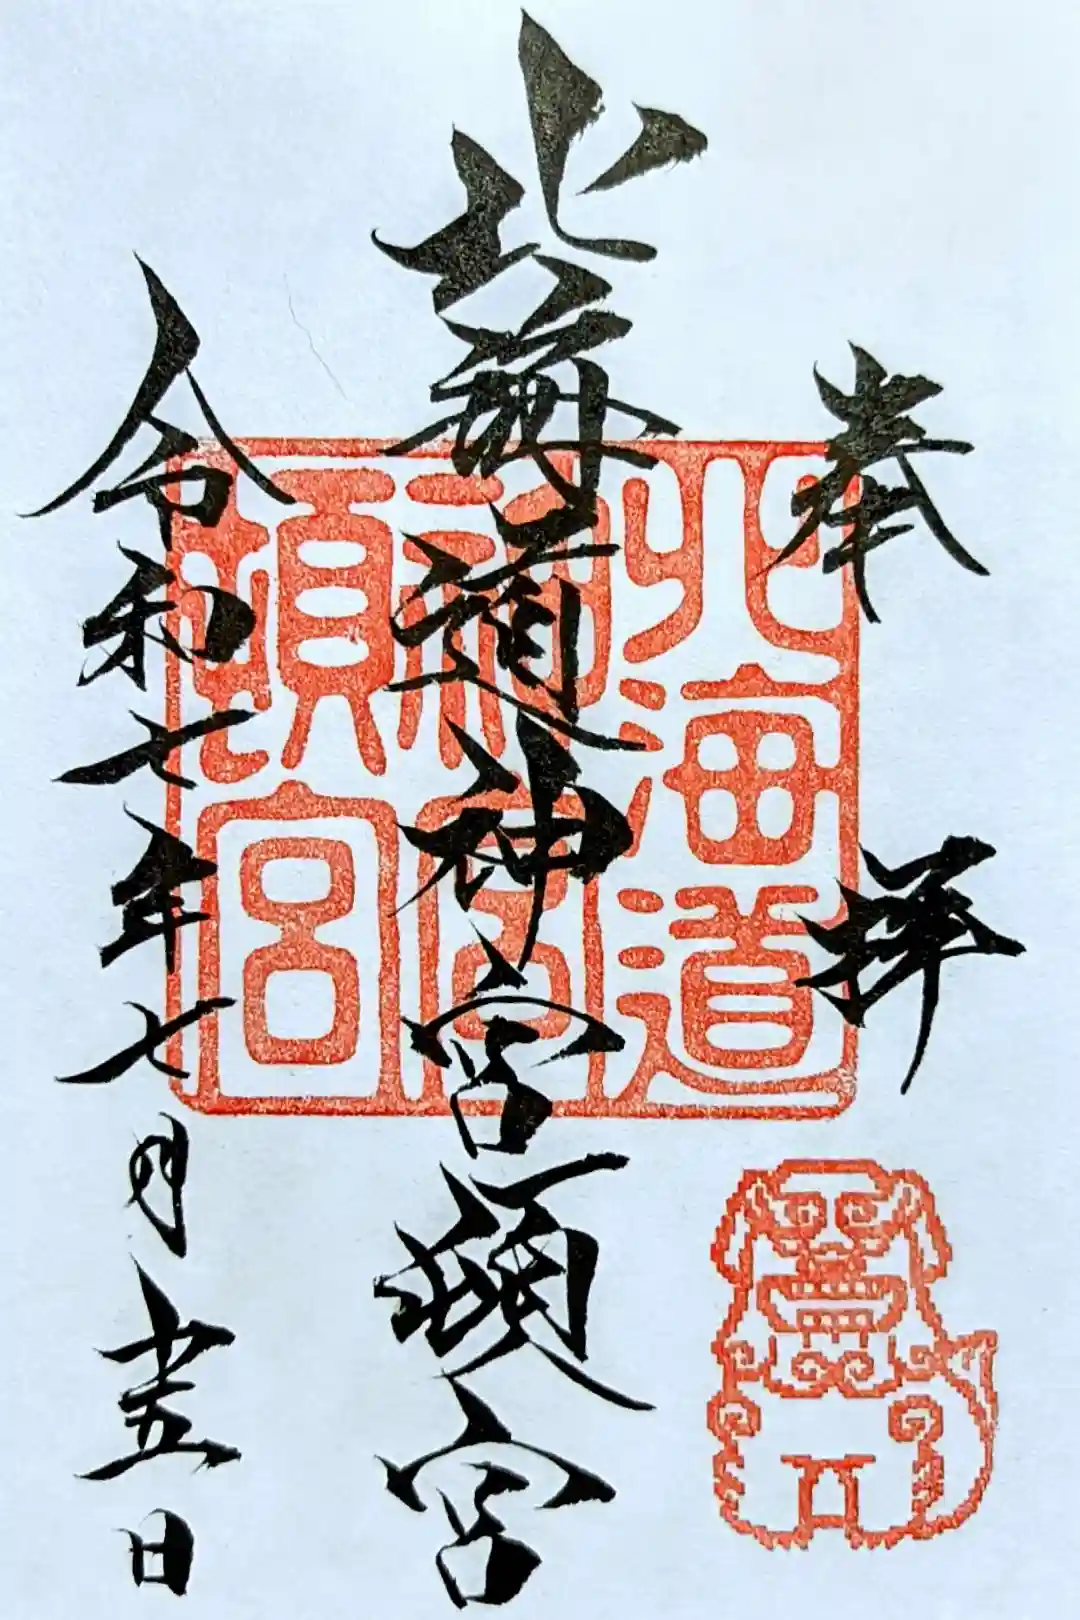 奉拝
北海道神宮頓宮
令和七年七月十五日
北海道
神宮
頓宮